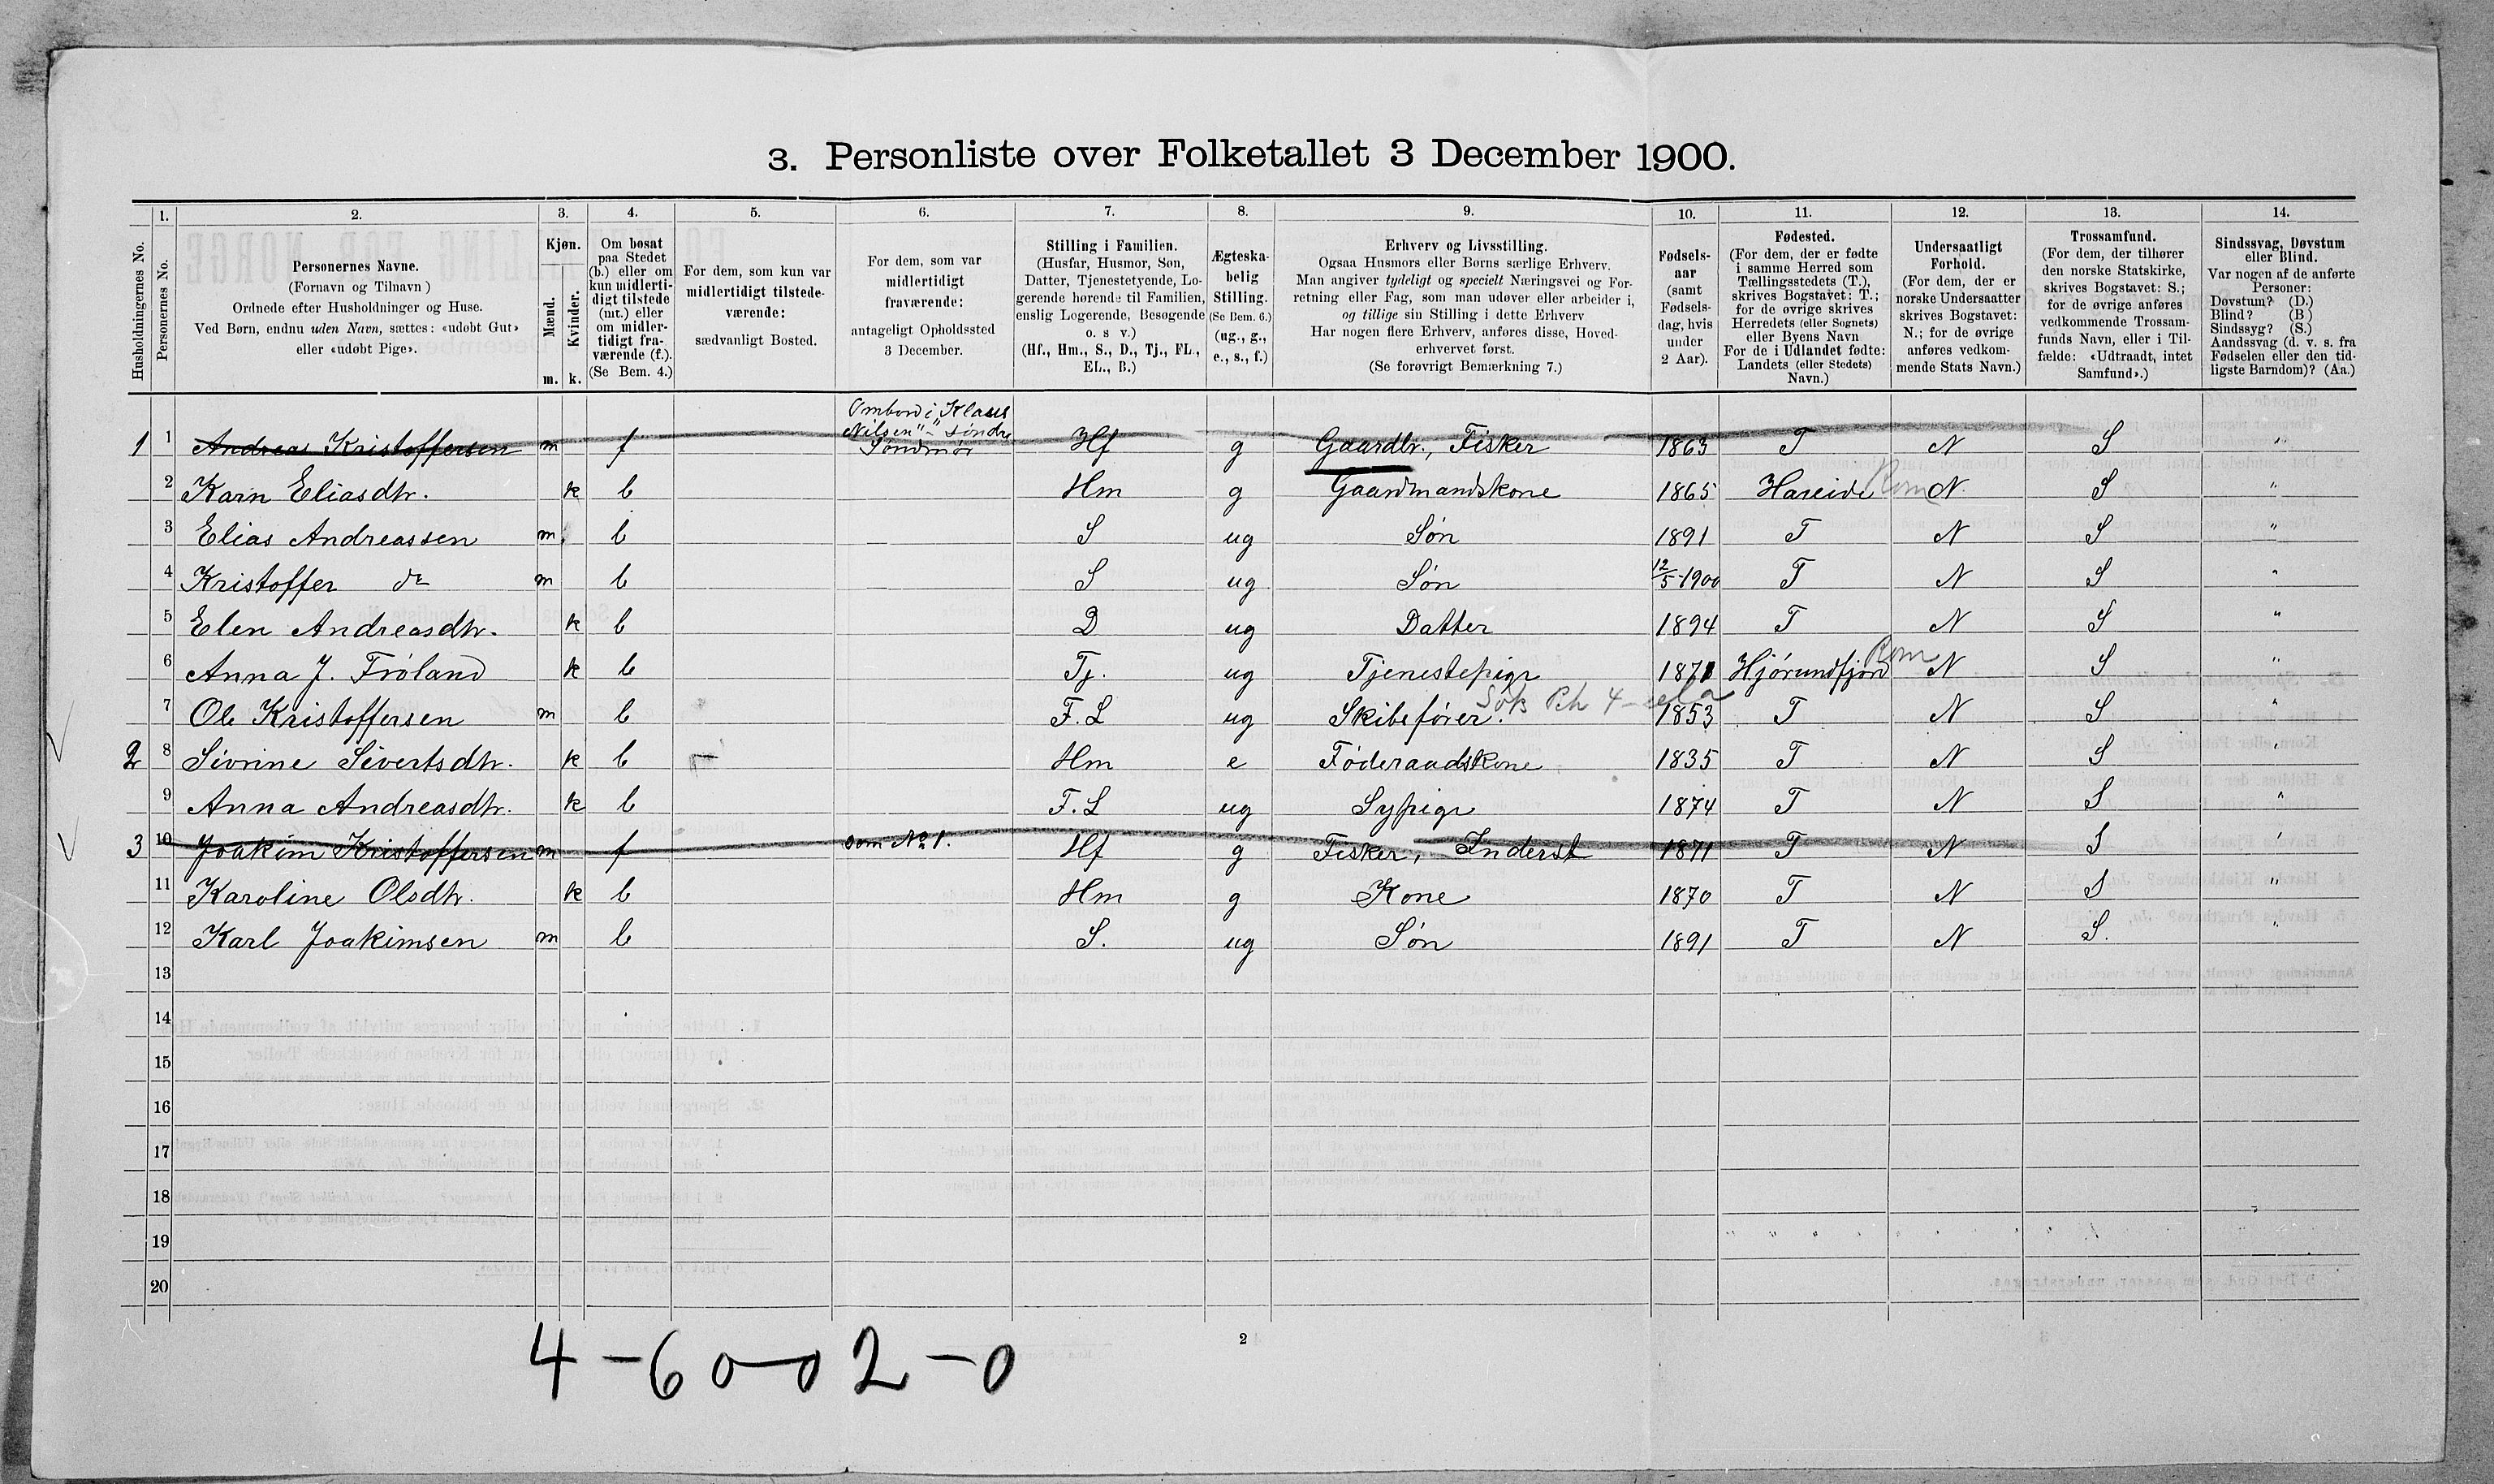 3. Personliste over Folketallet 3 December 1900.
1. 2. 3. 4. 5. 6. 7. 8. 9. 10. 11. 12. 13. 14.
Husholdningernes No.
Personernes No.
Personernes Navne.
(Fornavn og Tilnavn )
Ordnede efter Husholdninger og Huse.
Ved Børn, endnu uden Navn, sættes: «udøbt Gut»
eller «udøbt Pige».
Kjøn.
Mænd.
Kvinder.
m. k.
Om bosat
paa Stedet
(b.) eller om
kun midlerti-
digt tilstede
(mt.) eller
om midler-
tidigt fra-
værende (f.).
(Se Bem. 4.)
For dem, som kun var
midlertidigt tilstede-
værende:
sædvanligt Bosted.
For dem, som var
midlertidigt
fraværende:
antageligt Opholdssted
3 December.
Stilling i Familien.
(Husfar, Husmor, Søn,
Datter, Tjenestetyende, Lo-
gerende hørende til Familien,
enslig Logerende, Besøgende
o. s v.)
(Hf., Hm., S., D., Tj., FL.,
EL., B.)
Ægteska-
belig
Stilling.
(Se Bem. 6.)
(ug., g.,
e., s., f.)
Erhverv og Livsstilling.
Ogsaa Husmors eller Børns særlige Erhverv.
Man angiver tydeligt og specielt Næringsvei og For-
retning eller Fag, som man udøver eller arbeider i,
og tillige sin Stilling i dette Erhverv
Har nogen flere Erhverv, anføres disse, Hoved-
erhvervet først.
(Se forøvrigt Bemærkning 7.)
Fødsels-
aar
(samt
Fødsels-
dag, hvis
under
2 Aar).
Fødested.
(For dem, der er fødte
i samme Herred som
Tællingsstedets (T.),
skrives Bogstavet: T.;
for de øvrige skrives
Herredets (eller Sognets)
eller Byens Navn
For de i Udlandet fødte:
Landets (eller Stedets)
Navn.)
Undersaatligt
Forhold.
(For dem, der er
norske Undersaatter
skrives Bogstavet:
N.; for de øvrige
anføres vedkom-
mende Stats Navn.)
Trossamfund.
(For dem, der tilhører
den norske Statskirke,
skrives Bogstavet: S.;
for de øvrige anføres
vedkommende Trossam-
funds Navn, eller i Til-
fælde: «Udtraadt, intet
Samfund».)
Sindssvag, Døvstum
eller Blind.
Var nogen af de anførte
Personer:
Døvstum? (D.)
Blind? (B.)
Sindssyg? (S.)
Aandssvag (d. v. s. fra
Fødselen eller den tid-
ligste Barndom)? (Aa.)
Ombord i „Klaus
Nilsen" - Søndre
Søndmør
1 1 Andreas Kristoffersen m f Hf g Gaardbr., Fisker 1863 T N S "
2 Karn Eliasdtr. k b Hm g Gaardmandskone 1865 Hareide Rom N. S "
3 Elias Andreassen m. b — S ug Søn 1891 T N S "
4 Kristoffer do m b — S ug Søn 12/5-1900 T N S "
5 Elen Andreasdtr. k b D ug Datter 1894 T N S "
6 Anna J. Frøland k b Tj. ug Tjenestepige 1871 Hjørundfjord Rom N S "
7 Ole Kristoffersen m b F. L ug Skibsfører. 1853 T N S "
2 8 Sivrine Sivertsdtr. k b Hm e Føderaadskone 1835 T N S "
9 Anna Andreasdtr. k b F. L ug Sypige 1874 T N S "
3 10 Joakim Kristoffersen m f som No 1. Hf g Fisker, Inderst 1871 T N S "
11 Karoline Olsdtr. k b Hm g Kone 1870 T N S "
12 Karl Joakimsen m b S. ug Søn 1891 T N S. "
13
14
15
16
17
18
19
20
4 - 6 0 - 0 2 - 0
2